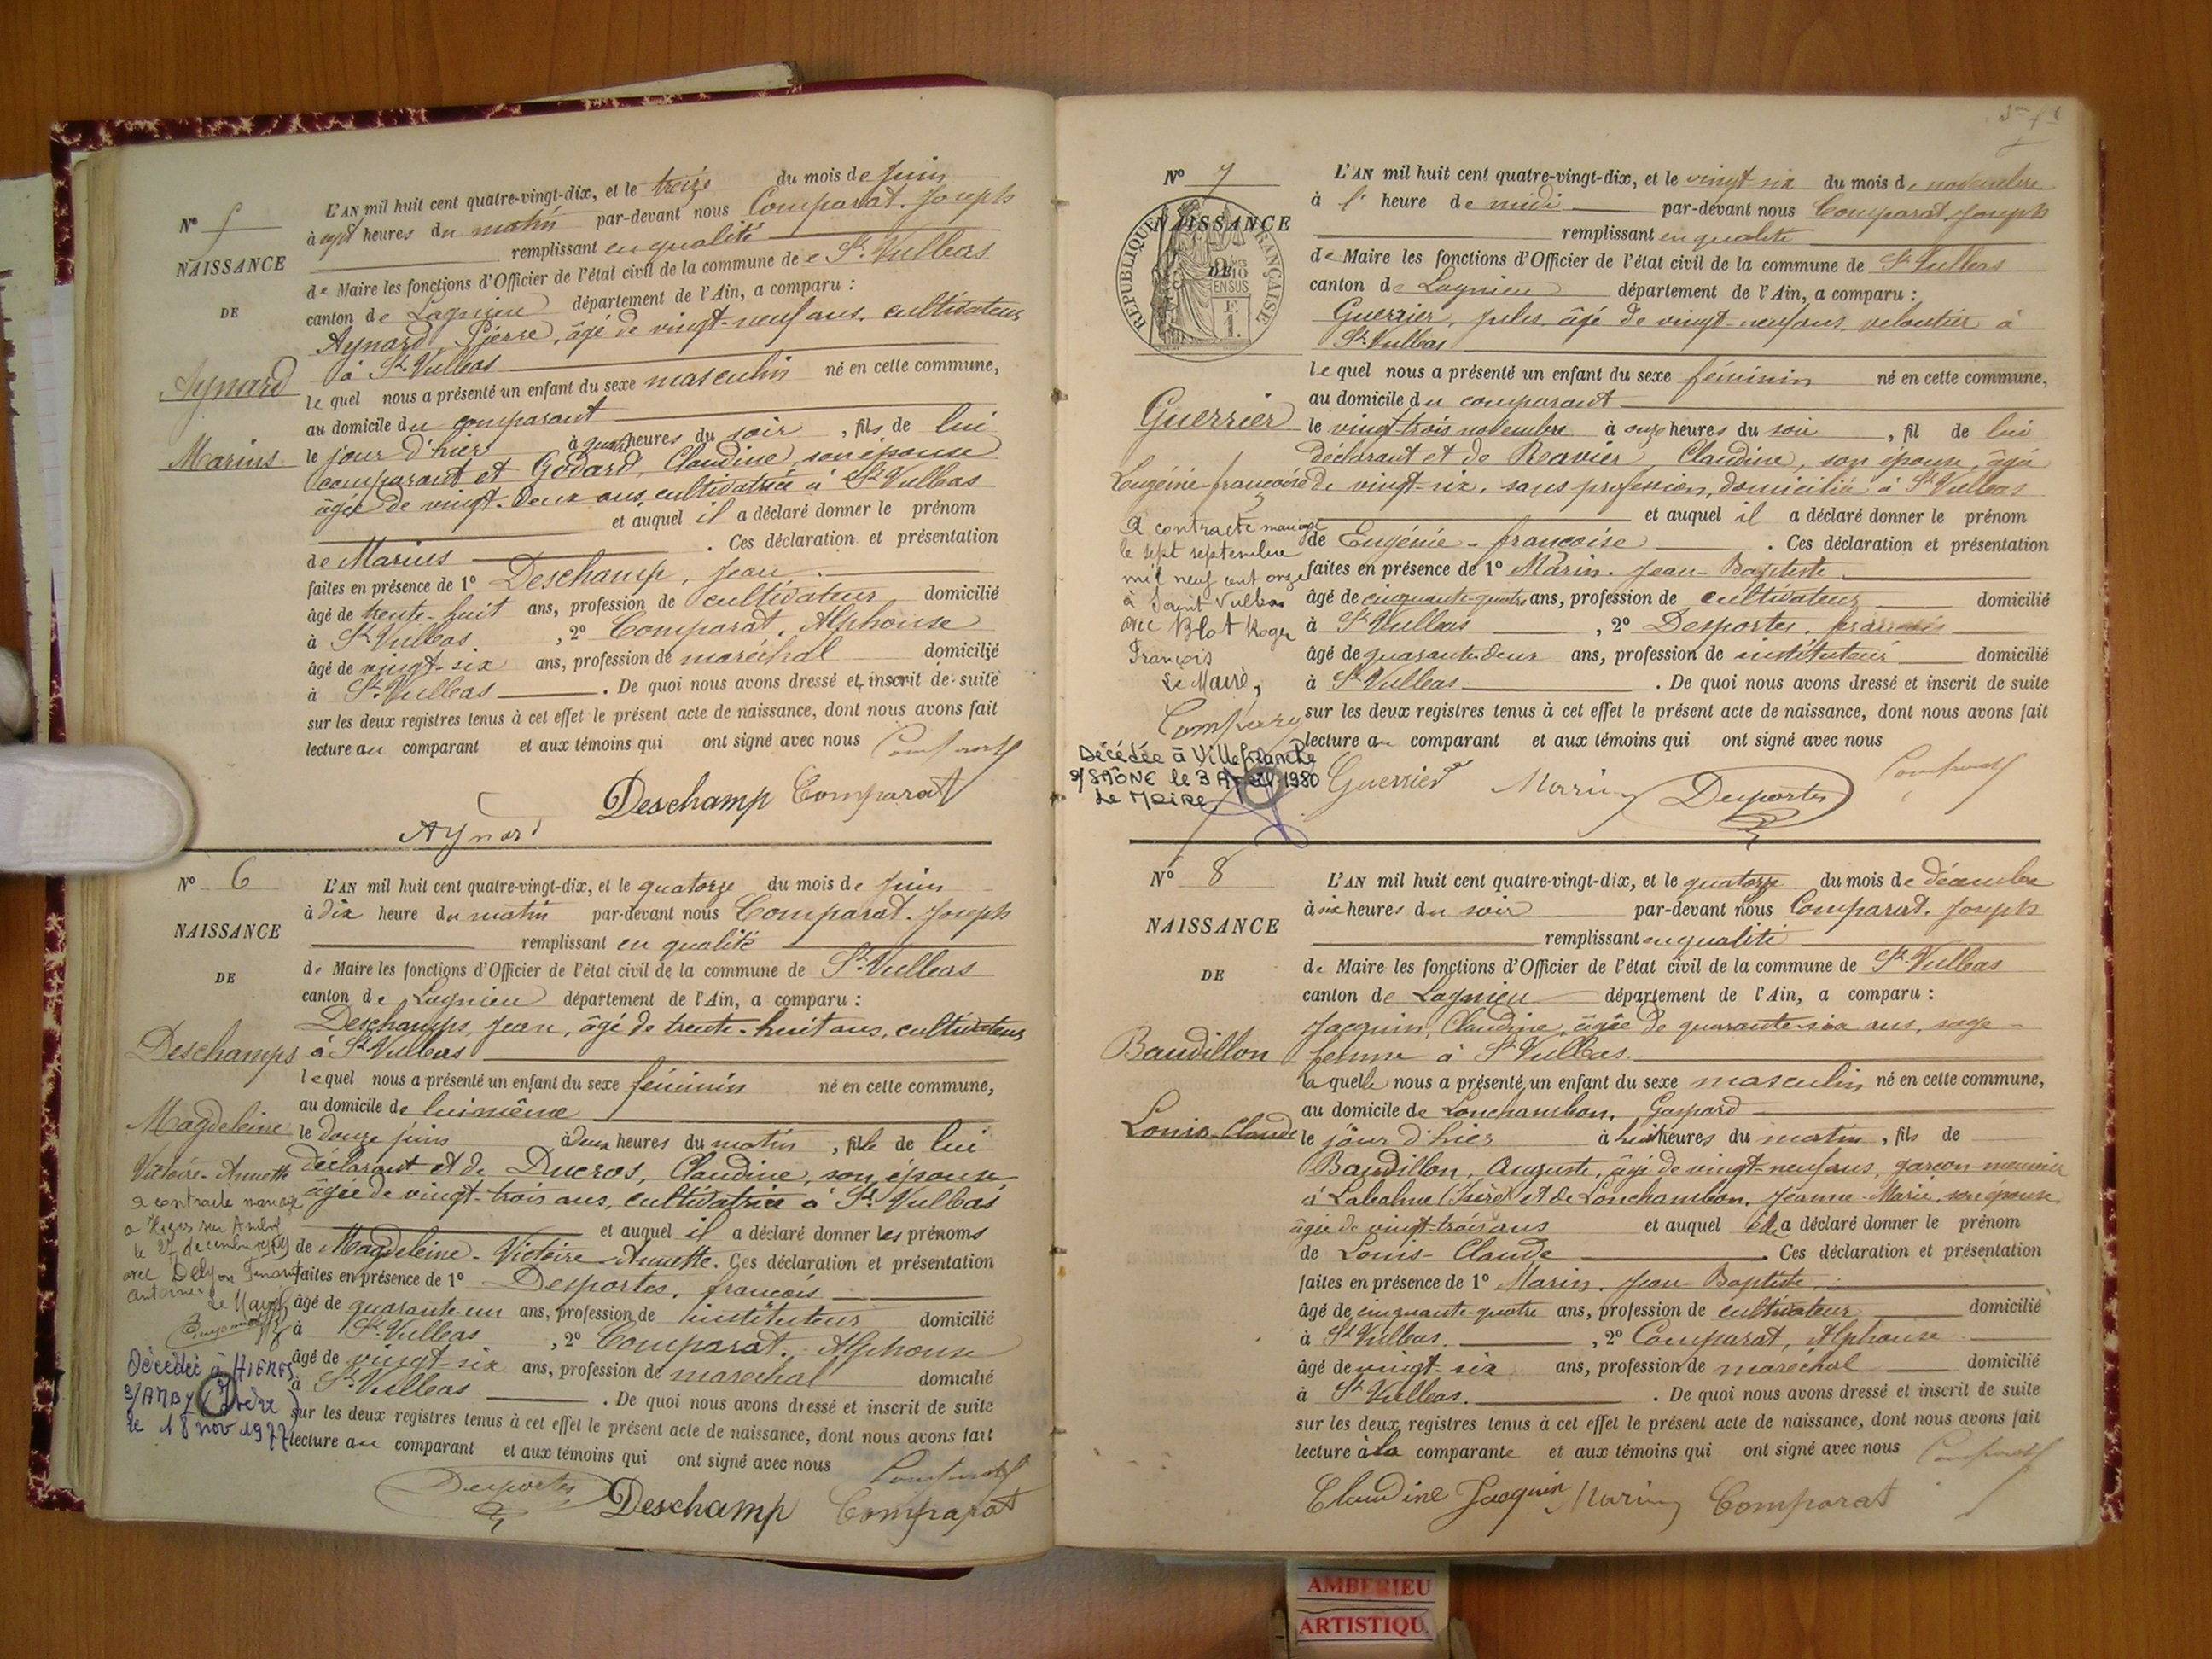 N° 5
NAISSANCE
DE
Aynard
Marius
L'AN mil huit cent quatre-vingt-dix, et le treize du mois de Juin
à sept heures du matin par-devant nous Comparat. Joseph
remplissant en qualité
de Maire les fonctions d'Officier de l'état civil de la commune de St. Vulbas
canton de Lagnieu département de l'Ain, a comparu :
Aynard Pierre, âgé de vingt-neuf ans, cultivateur
à St. Vulbas
lequel nous a présenté un enfant du sexe masculin né en cette commune,
au domicile du comparant
le jour d'hier à quatre heures du soir, fils de lui
comparant et Godard, Claudine son épouse
âgée de vingt-deux ans, cultivatrice à St Vulbas
et auquel il a déclaré donner le prénom
de Marius . Ces déclaration et présentation
faites en présence de 1° Deschamp, Jean
âgé de trente-huit ans, profession de cultivateur domicilié
à St. Vulbas. , 2° Comparat, Alphonse
âgé de vingt-six ans, profession de maréchal domicilié
à St. Vulbas . De quoi nous avons dressé et inscrit de suite
sur les deux registres tenus à cet effet le présent acte de naissance, dont nous avons fait
lecture au comparant et aux témoins qui ont signé avec nous Comparat
Deschamp Comparat
Aynard
N° 6
NAISSANCE
DE
Deschamps
Magdeleine
Victoire-Annette
a contracté mariage
le 27 décembre
avec
Antoine
Le Maire
Décédée à HIERES
S/AMBY (Isère)
le 18 nov 1977
L'AN mil huit cent quatre-vingt-dix, et le quatorze du mois de Juin
à dix heure du matin par-devant nous Comparat. Joseph
remplissant en qualité
de Maire les fonctions d'Officier de l'état civil de la commune de St. Vulbas
canton de Lagnieu département de l'Ain, a comparu :
Deschamps, Jean, âgé de trente-huit ans, cultivateur
à St. Vulbas
lequel nous a présenté un enfant du sexe féminin né en cette commune,
au domicile de lui même
le douze juin à deux heures du matin, fille de lui
déclarant et de Ducros, Claudine, son épouse
âgée de vingt-trois ans, cultivatrice à St. Vulbas
et auquel il a déclaré donner les prénoms
de Magdeleine-Victoire Annette. Ces déclaration et présentation
faites en présence de 1° Desportes, françois
âgé de quarante-un ans, profession de instituteur domicilié
à St. Vulbas , 2° Comparat. Alphonse
âgé de vingt-six ans, profession de maréchal domicilié
à St. Vulbas . De quoi nous avons dressé et inscrit de suite
sur les deux registres tenus à cet effet le présent acte de naissance, dont nous avons fait
lecture au comparant et aux témoins qui ont signé avec nous Comparat
Desportes Deschamp Comparat
N° 7
NAISSANCE
DE
RÉPUBLIQUE FRANÇAISE
Guerrier
Eugénie françoise
A contracté mariage
le sept septembre
mil neuf cent onze
à Saint Vulbas
avec Blot Roger
François
Le Maire,
Décédée à Villefranche
s/SAÔNE le 3 Avril 1980
Le Maire
L'AN mil huit cent quatre-vingt-dix, et le vingt six du mois de novembre
à l' heure de midi par-devant nous Comparat Joseph
remplissant en qualité
de Maire les fonctions d'Officier de l'état civil de la commune de St. Vulbas
canton de Lagnieu département de l'Ain, a comparu :
Guerrier, Jules, âgé de vingt-neuf ans, veloutier à
St. Vulbas
lequel nous a présenté un enfant du sexe féminin né en cette commune,
au domicile du comparant
le vingt-trois novembre à onze heures du soir, fil de lui
déclarant et de Reavier, Claudine, son épouse, âgée
de vingt-six, sans profession, domiciliée à St. Vulbas
et auquel il a déclaré donner le prénom
de Eugénie-françoise . Ces déclaration et présentation
faites en présence de 1° Marin. Jean-Baptiste
âgé de cinquante-quatre ans, profession de cultivateur domicilié
à St. Vulbas , 2° Desportes, françois
âgé de quarante-deux ans, profession de instituteur domicilié
à St. Vulbas . De quoi nous avons dressé et inscrit de suite
sur les deux registres tenus à cet effet le présent acte de naissance, dont nous avons fait
lecture au comparant et aux témoins qui ont signé avec nous
Guerrier Marin Desportes Comparat
N° 8
NAISSANCE
DE
Baudillon
Louis-Claude
L'AN mil huit cent quatre-vingt-dix, et le quatorze du mois de décembre
à six heures du soir par-devant nous Comparat. Joseph
remplissant en qualité
de Maire les fonctions d'Officier de l'état civil de la commune de St. Vulbas
canton de Lagnieu département de l'Ain, a comparu :
Jacquin, Claudine, âgée de quarante-six ans, sage-
femme à St. Vulbas.
laquelle nous a présenté un enfant du sexe masculin né en cette commune,
au domicile de Lonchambon, Gaspard
le jour d'hier à huit heures du matin, fils de
Baudillon, Auguste, âgé de vingt-neuf ans, garçon-meunier
à Labalme (Isère) et de Lonchambon, Jeanne-Marie, son épouse
âgée de vingt-trois ans et auquel elle a déclaré donner le prénom
de Louis-Claude . Ces déclaration et présentation
faites en présence de 1° Marin. Jean-Baptiste,
âgé de cinquante-quatre ans, profession de cultivateur domicilié
à St. Vulbas. , 2° Comparat, Alphonse
âgé de vingt-six ans, profession de maréchal domicilié
à St. Vulbas. . De quoi nous avons dressé et inscrit de suite
sur les deux registres tenus à cet effet le présent acte de naissance, dont nous avons fait
lecture à la comparante et aux témoins qui ont signé avec nous Comparat
Claudine Jacquin Marin Comparat
AMBERIEU
ARTISTIQU